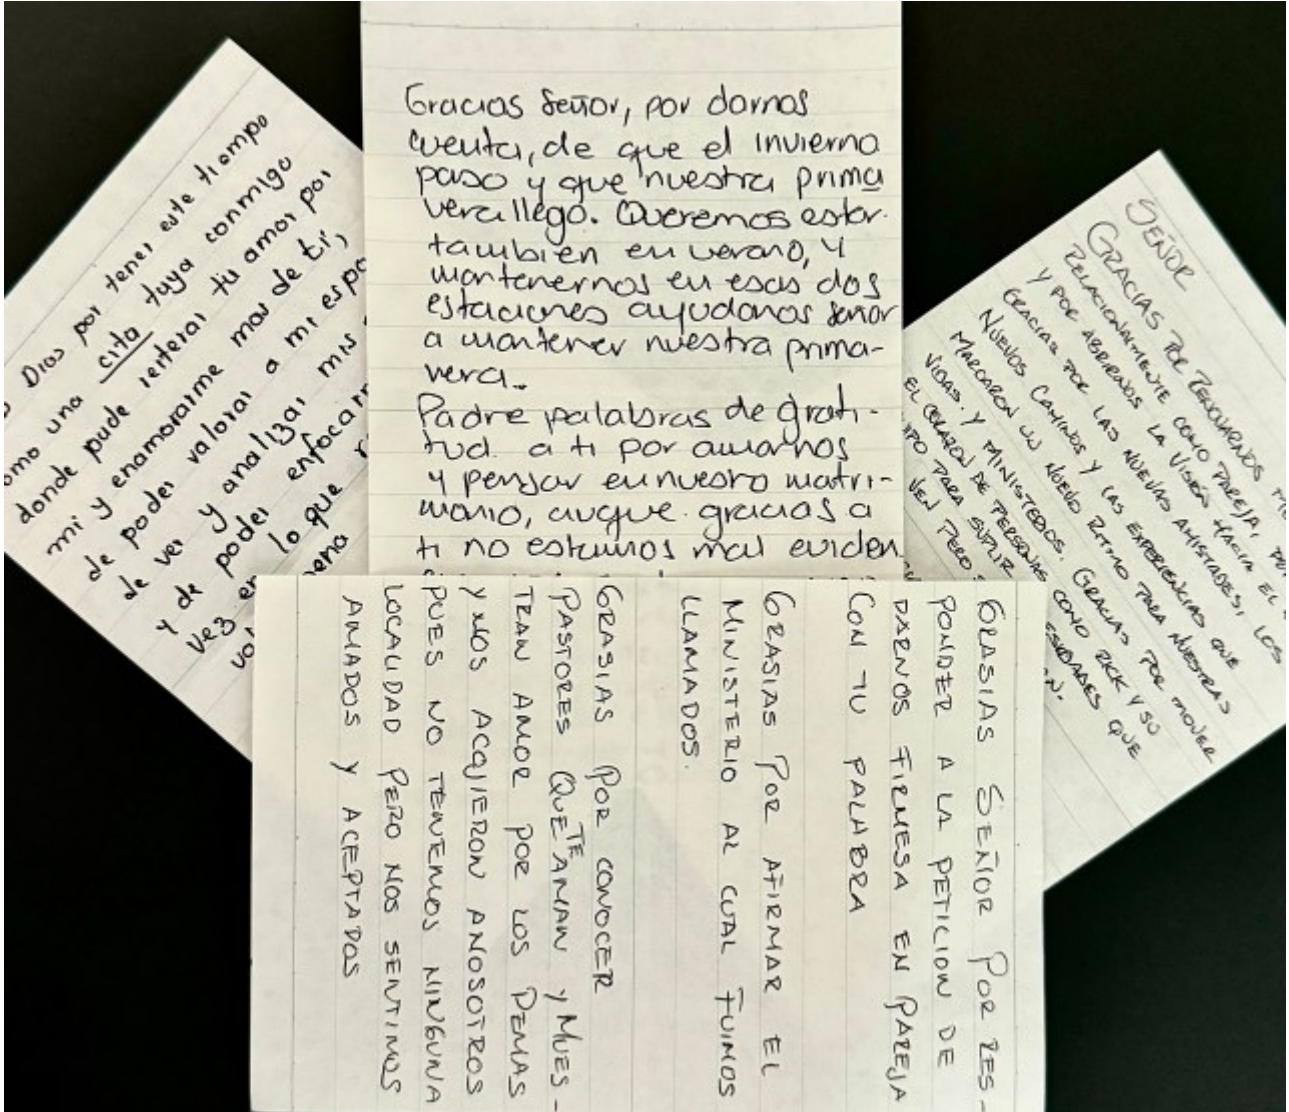 Dios por tener este tiempo
como una cita tuya conmigo
donde pude reiterar tu amor por
mi y enamorarme mas de ti,
de poder valorar a mi espo
de ver y analizar mis
y de poder enfocar
vez en lo que
pena
Gracias Señor, por darnos
cuenta, de que el invierno
paso y que nuestra prima
vera llego. Queremos estar
también en verano, y
mantenernos en esas dos
estaciones ayudanos señor
a mantener nuestra prima-
vera.
Padre palabras de grati-
tud. a ti por amarnos
y pensar en nuestro matri-
monio, auque gracias a
ti no estamos mal eviden
SEÑOR
GRACIAS POR RENOVARNOS
RELACIONALMENTE COMO PAREJA,
Y POR ABRIRNOS LA VISIÓN HACIA EL
GRACIAS POR LAS NUEVAS AMISTADES, LOS
NUEVOS CAMINOS Y LAS EXPERIENCIAS QUE
MARCARON UN NUEVO RITMO PARA NUESTRAS
VIDAS. Y MINISTERIOS. GRACIAS POR MOVER
EL CORAZON DE PERSONAS COMO RICK Y SU
PARA SUPLIR ESIDADES QUE
VEN PERO
GRASIAS SEÑOR POR RES-
PONDER A LA PETICION DE
DARNOS FIRMESA EN PAREJA
CON TU PALABRA
GRASIAS POR AFIRMAR EL
MINISTERIO AL CUAL FUIMOS
LLAMADOS.
GRASIAS POR CONOCER
PASTORES QUE TE AMAN Y MUES-
TRAN AMOR POR LOS DEMAS
Y NOS ACOJIERON ANOSOTROS
PUES NO TENEMOS NINGUNA
LOCALIDAD PERO NOS SENTIMOS
AMADOS Y ACEPTADOS